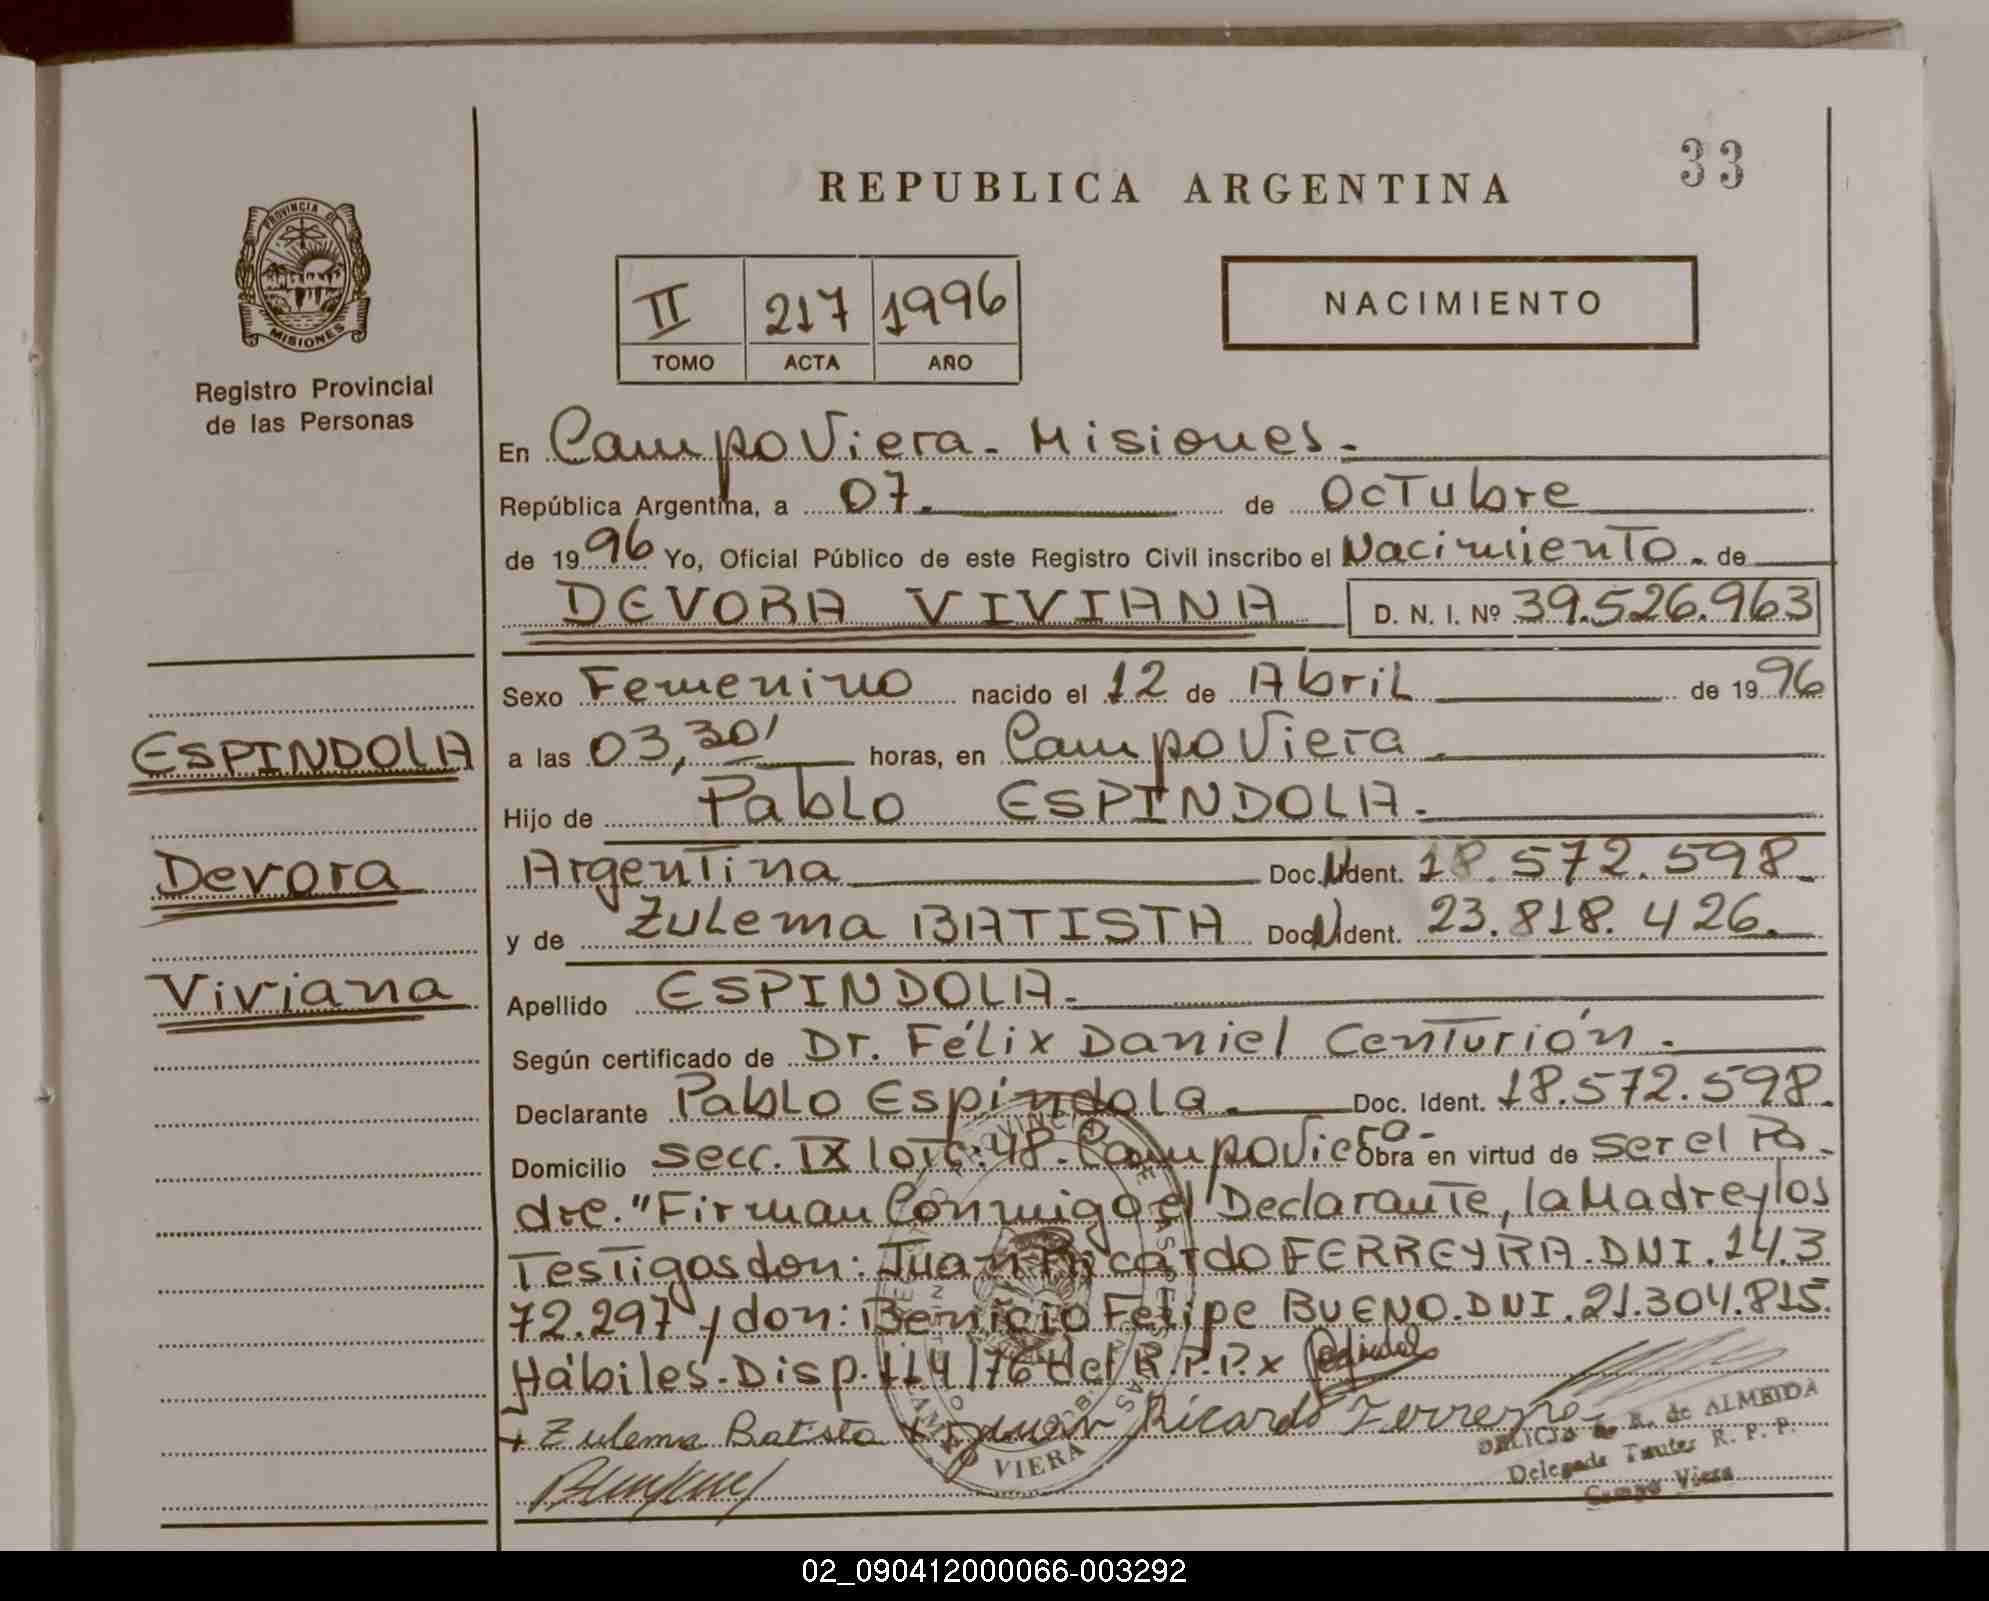 33
REPUBLICA ARGENTINA
PROVINCIA DE
MISIONES
Registro Provincial
de las Personas
II 217 1996
TOMO ACTA AÑO
NACIMIENTO
En Campo Viera - Misiones.-
República Argentina, a 07.- de Octubre
de 1996 Yo, Oficial Público de este Registro Civil inscribo el Nacimiento. de
DEVORA VIVIANA D. N. I. Nº 39.526.963
Sexo Femenino nacido el 12 de Abril de 1996
ESPINDOLA
a las 03,30' horas, en Campo Viera.-
Hijo de Pablo ESPINDOLA.-
Devora
Argentina Doc. Ident. 18.572.598.-
y de Zulema BATISTA Doc. Ident. 23.818.426.
Viviana
Apellido ESPINDOLA.-
Según certificado de Dr. Félix Daniel Centurión.-
Declarante Pablo Espindola.- Doc. Ident. 18.572.598.
Domicilio secc. IX lote: 48- Campo Viera- Obra en virtud de ser el Pa-
dre. "Firman Conmigo el Declarante, la Madre y los
Testigos don: Juan Ricardo FERREYRA. DNI. 14.3
72.297 y don: Benicio Felipe BUENO. DNI. 21.304.815.
Hábiles. Disp. 114/76 del R.P.P. x
+ Zulema Batista x Juan Ricardo Ferreyra
VIERA
R. de ALMEIDA
Delegada Titular R. P. P.
Campo Viera
02_090412000066-003292